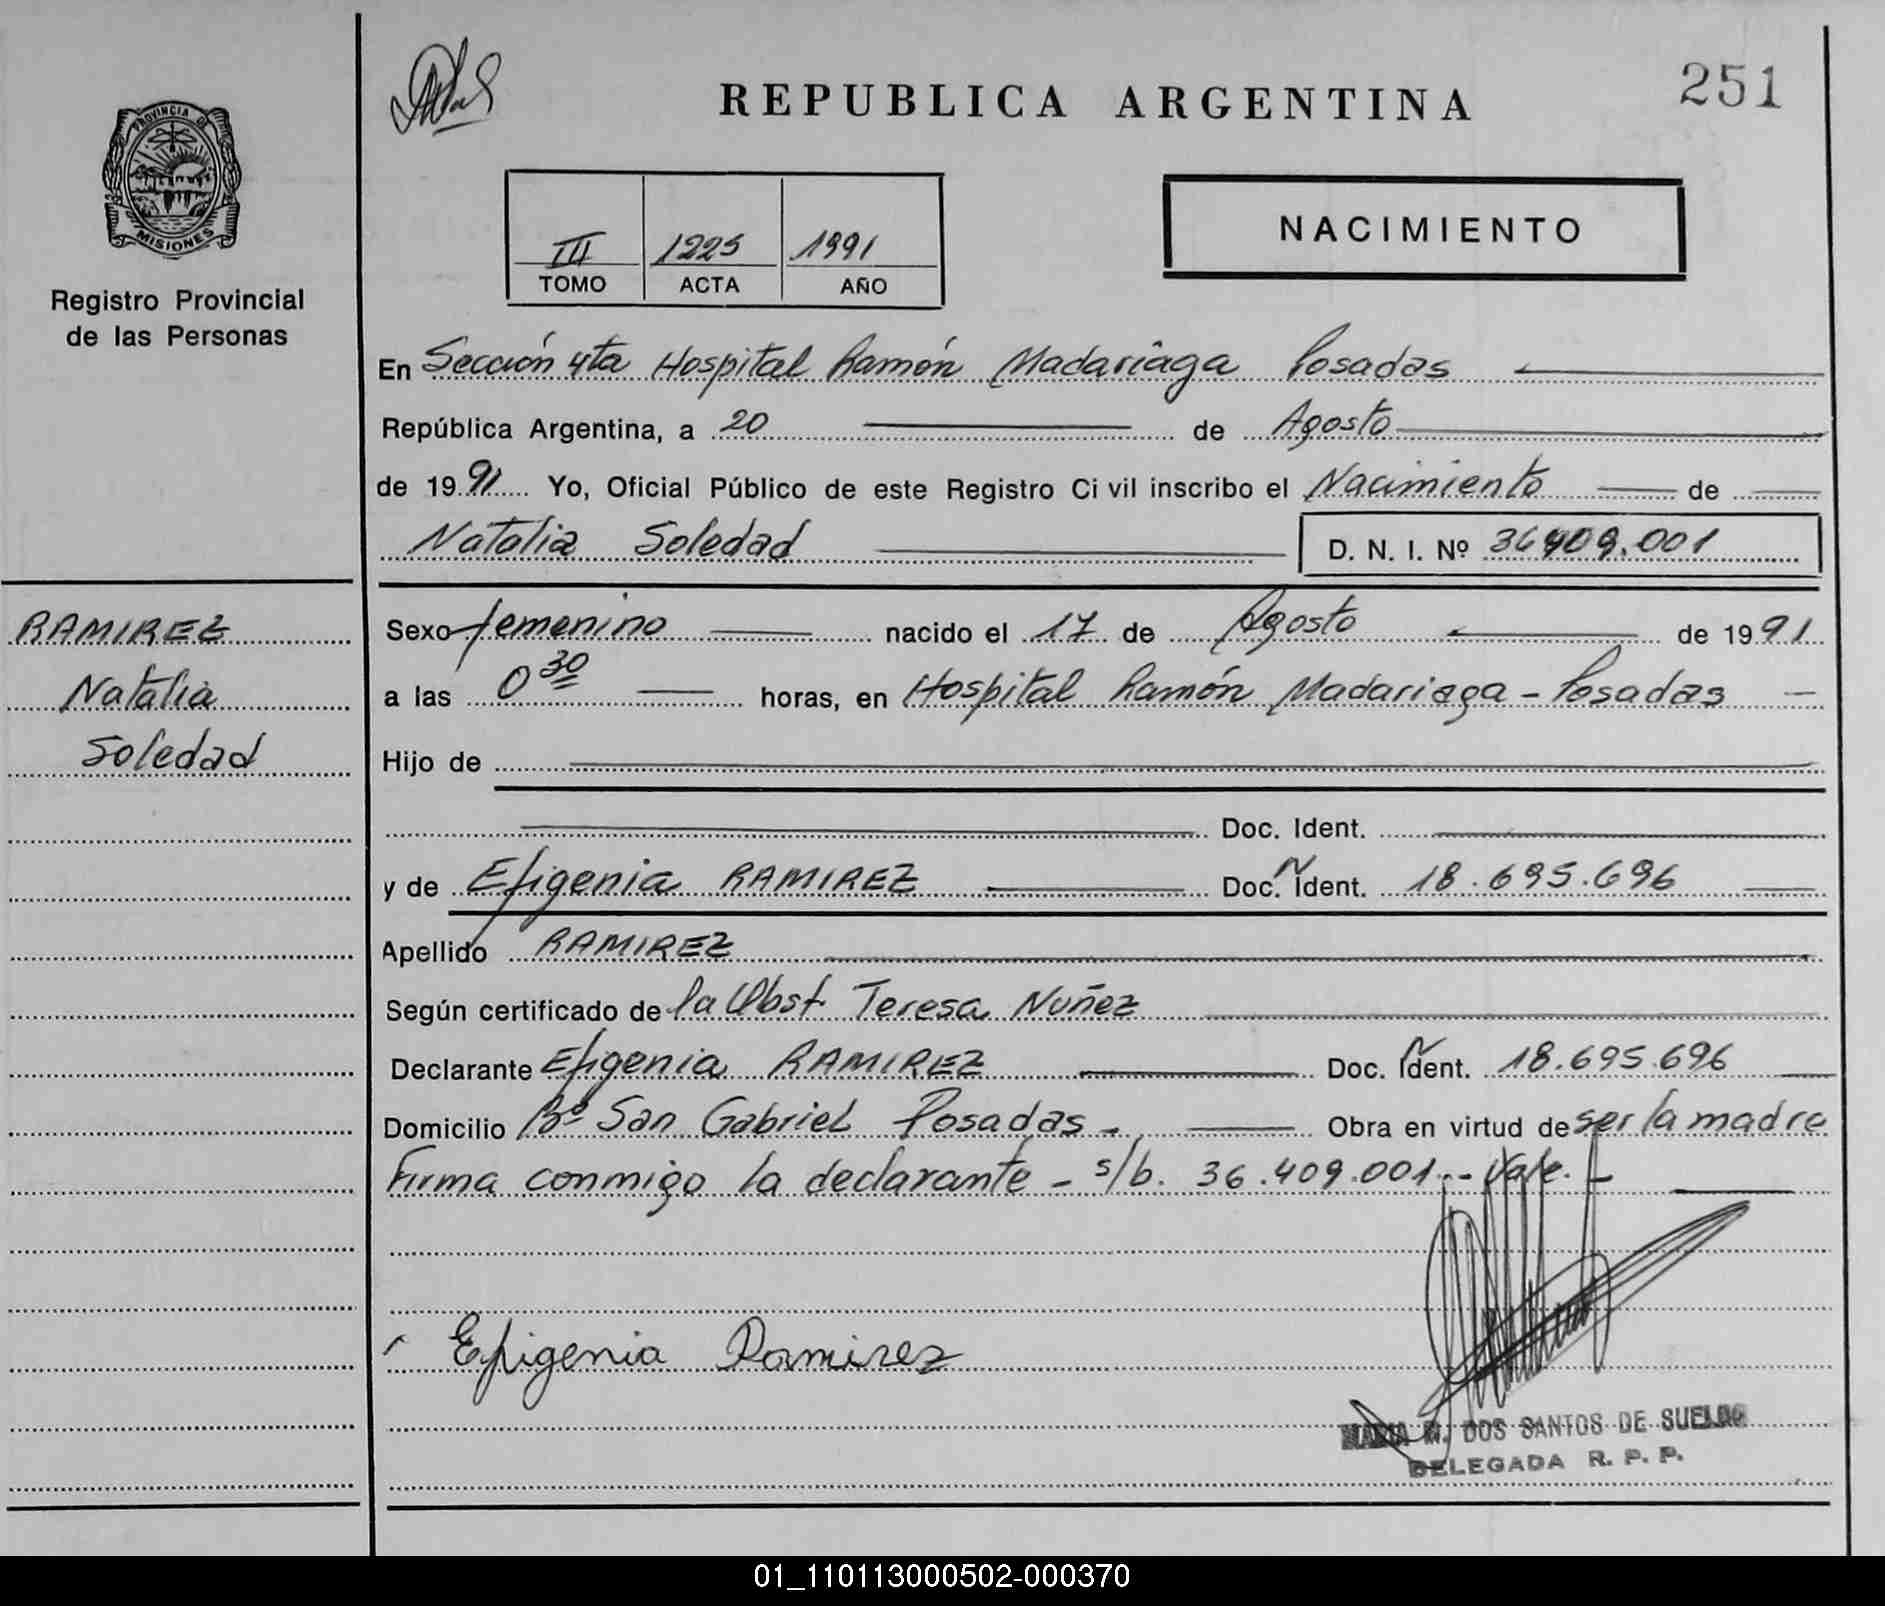 REPUBLICA ARGENTINA
251
PROVINCIA DE
MISIONES
Registro Provincial
de las Personas
III 1225 1991
TOMO ACTA AÑO
NACIMIENTO
En Sección 4ta Hospital Ramón Madariaga Posadas
República Argentina, a 20 de Agosto
de 1991 Yo, Oficial Público de este Registro Ci vil inscribo el Nacimiento de
Natalia Soledad D. N. I. Nº 36409.001
RAMIREZ
Natalia
Soledad
Sexo femenino nacido el 17 de Agosto de 1991
a las 0 30 horas, en Hospital Ramón Madariaga - Posadas
Hijo de
Doc. Ident.
y de Efigenia RAMIREZ Doc. Ident. 18.695.696
Apellido RAMIREZ
Según certificado de la Obst Teresa Nuñez
Declarante Efigenia RAMIREZ Doc. Ident. 18.695.696
Domicilio Bº San Gabriel Posadas - Obra en virtud de ser la madre
Firma conmigo la declarante - s/b. 36.409.001 - Vale. -
Efigenia Ramirez
MARIA DOS SANTOS DE
DELEGADA R. P. P.
01_110113000502-000370